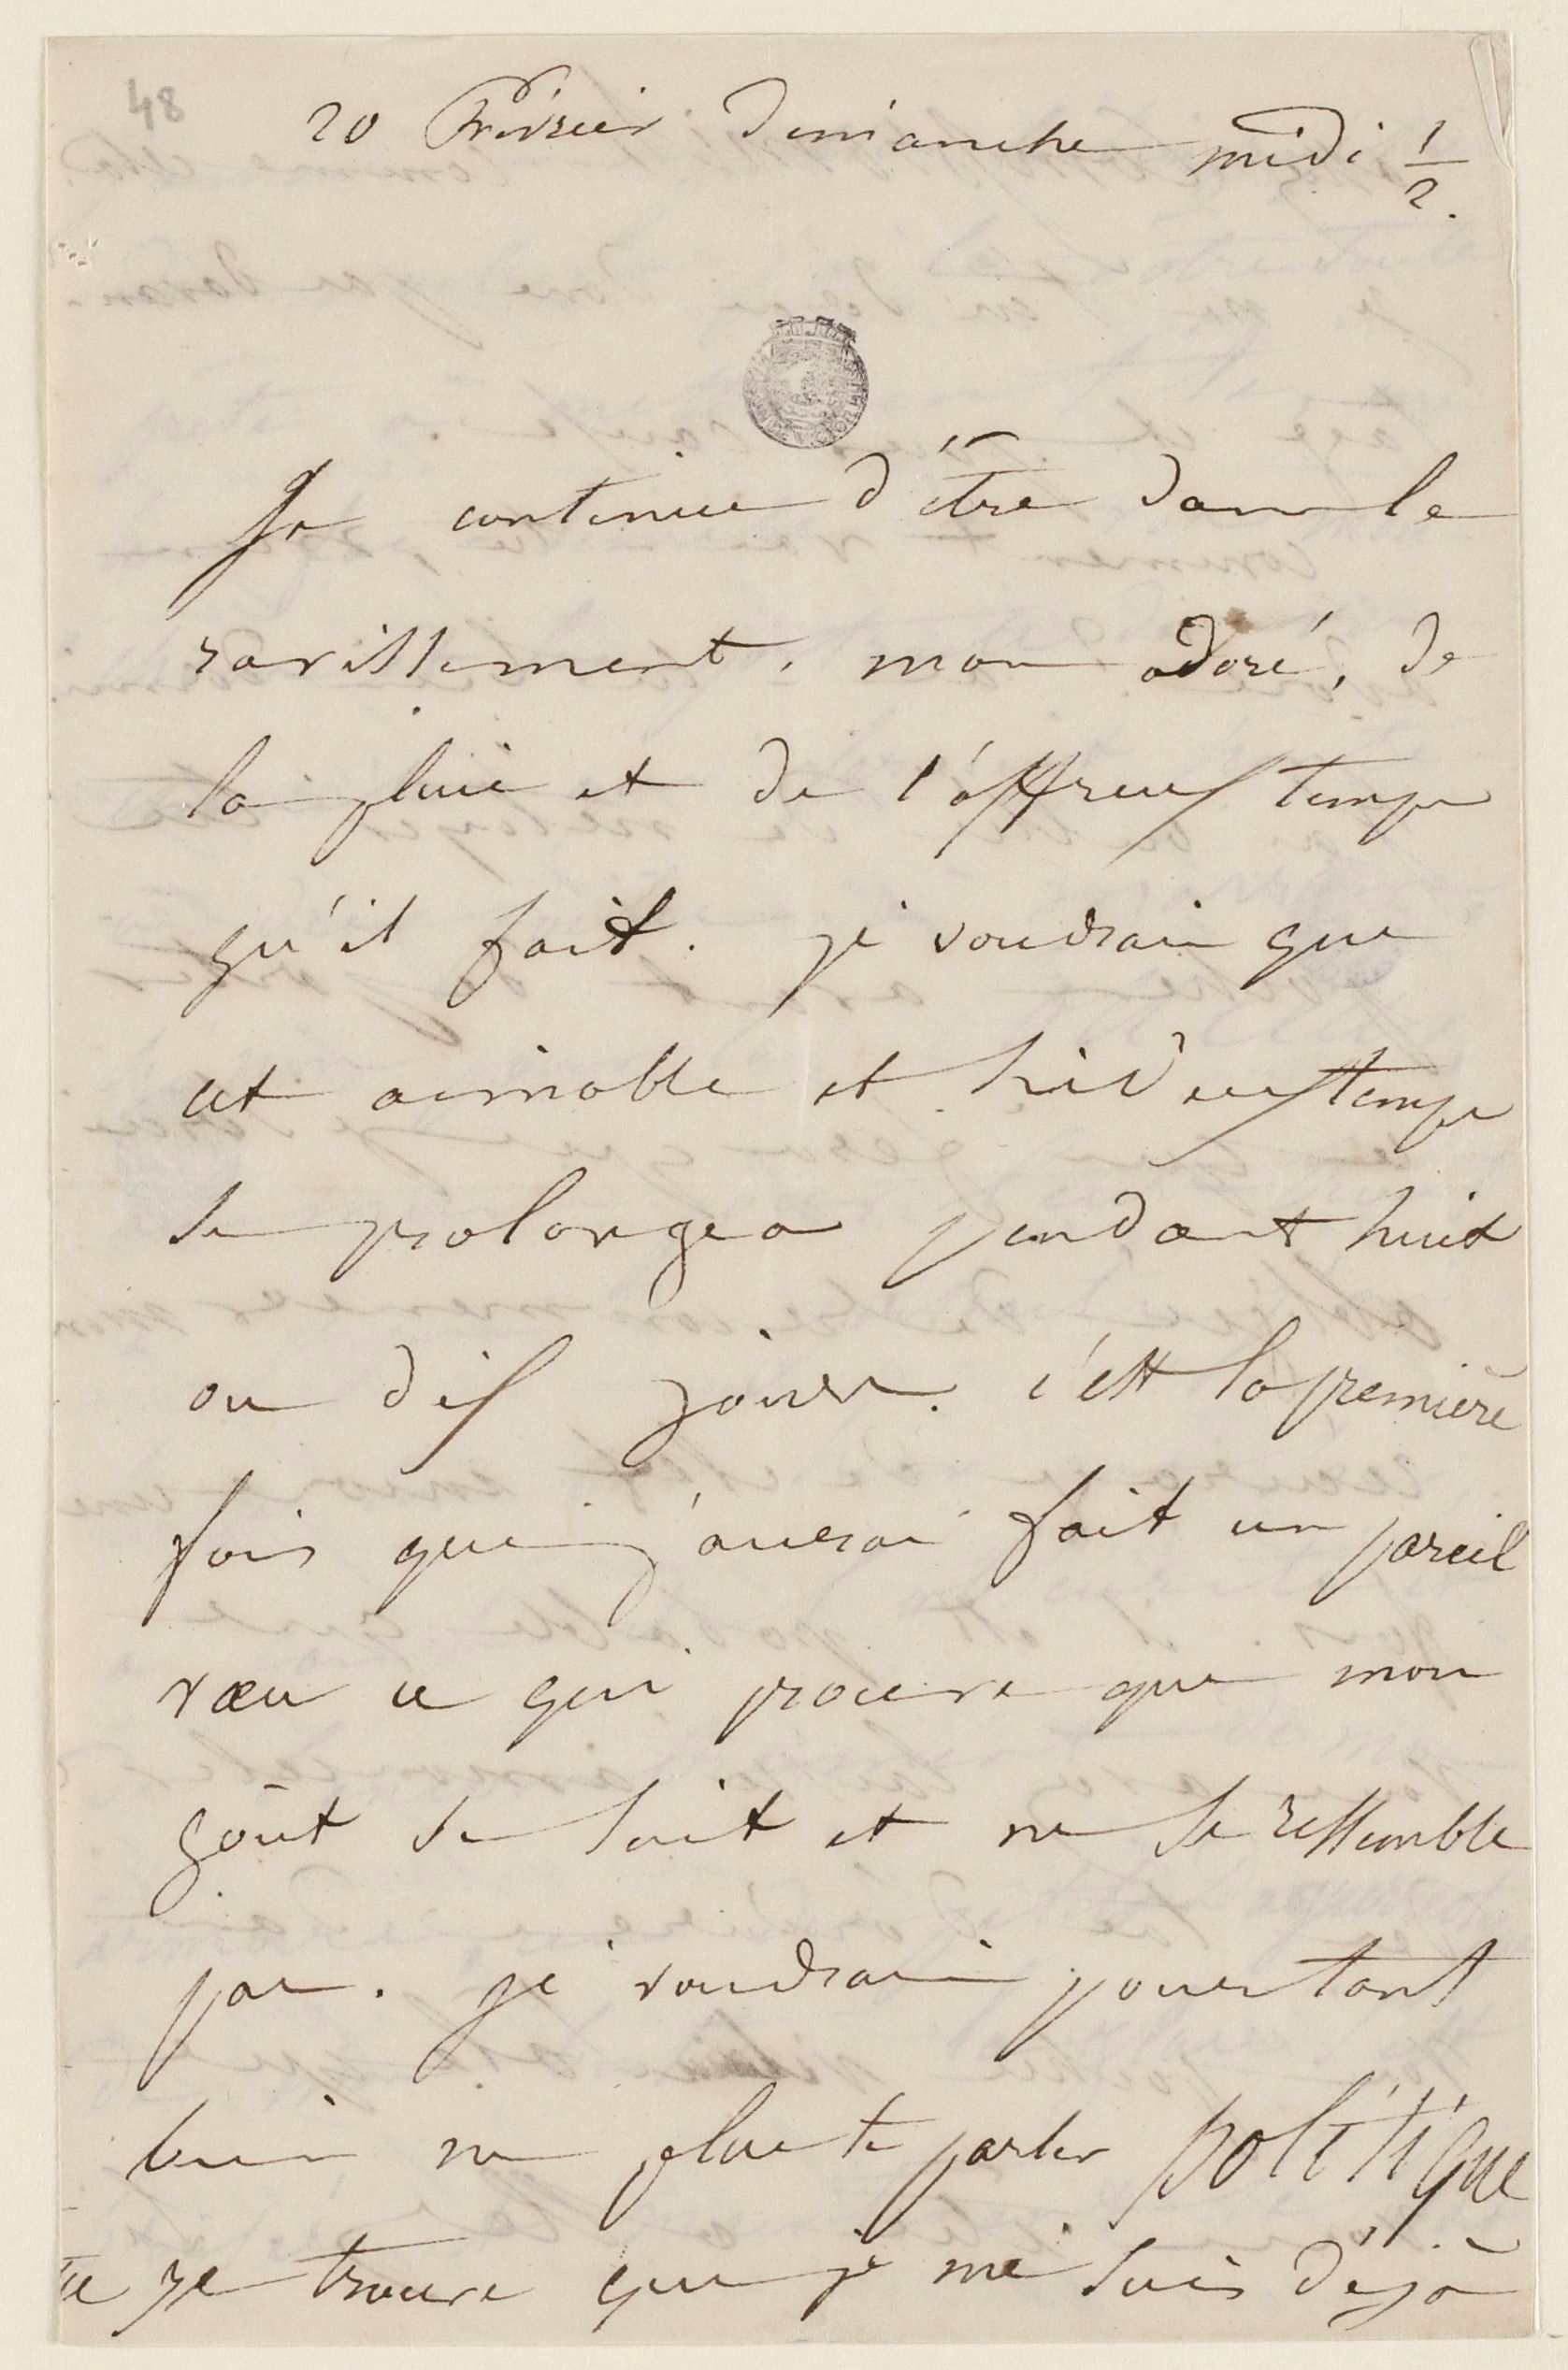 48
20 Février Dimanche midi 1/2.
Je continue d'être dans le
ravissement, mon adoré, de
la pluie et de l'affreux temps
qu'il fait. je voudrais que
cet aimable et hideux temps
se prolongea pendant huit
ou dix jours. c'est la première
fois que j'aurai fait un pareil
vœu ce qui prouve que mon
goût se suit et ne se ressemble
pas. je voudrais pourtant
bien ne plus te parler politique
je trouve que je me suis déjà